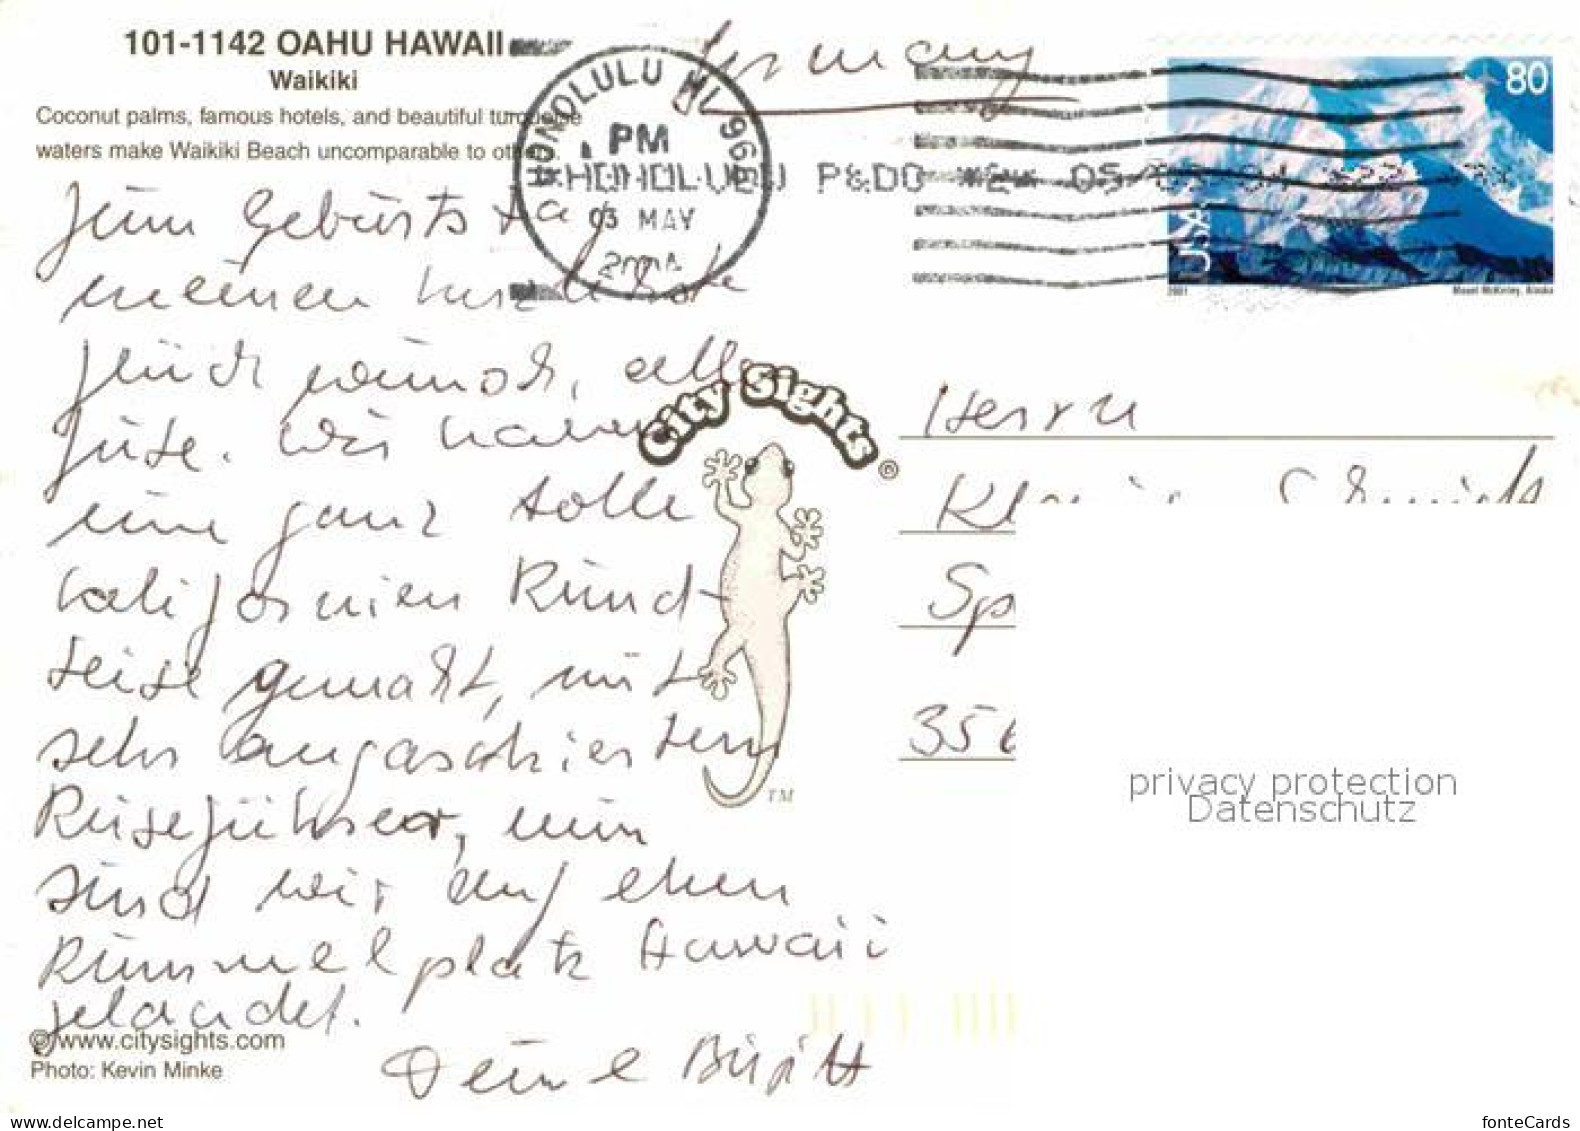 101-1142 OAHU HAWAII
Waikiki
Coconut palms, famous hotels, and beautiful turquoise
waters make Waikiki Beach uncomparable to
Germany
HONOLULU HI 968
PM
03 MAY
HONOLULU P&DC
80
USA
2001
Mount McKinley, Alaska
Zum Geburtstag
meinen herzlichste
Glück wünsch, alles
Gute. Wir haben
eine ganz tolle
Kalifornien Rund-
reise gemacht, mit
sehr angaschiertem
Reiseführer, nun
sind wir auf eben
Rummelplatz Hawaii
gelandet.
Deine Birgitt
City Sights
©
TM
Herrn
Sp
35
privacy protection
Datenschutz
© www.citysights.com
Photo: Kevin Minke
www.delcampe.net
fonteCards